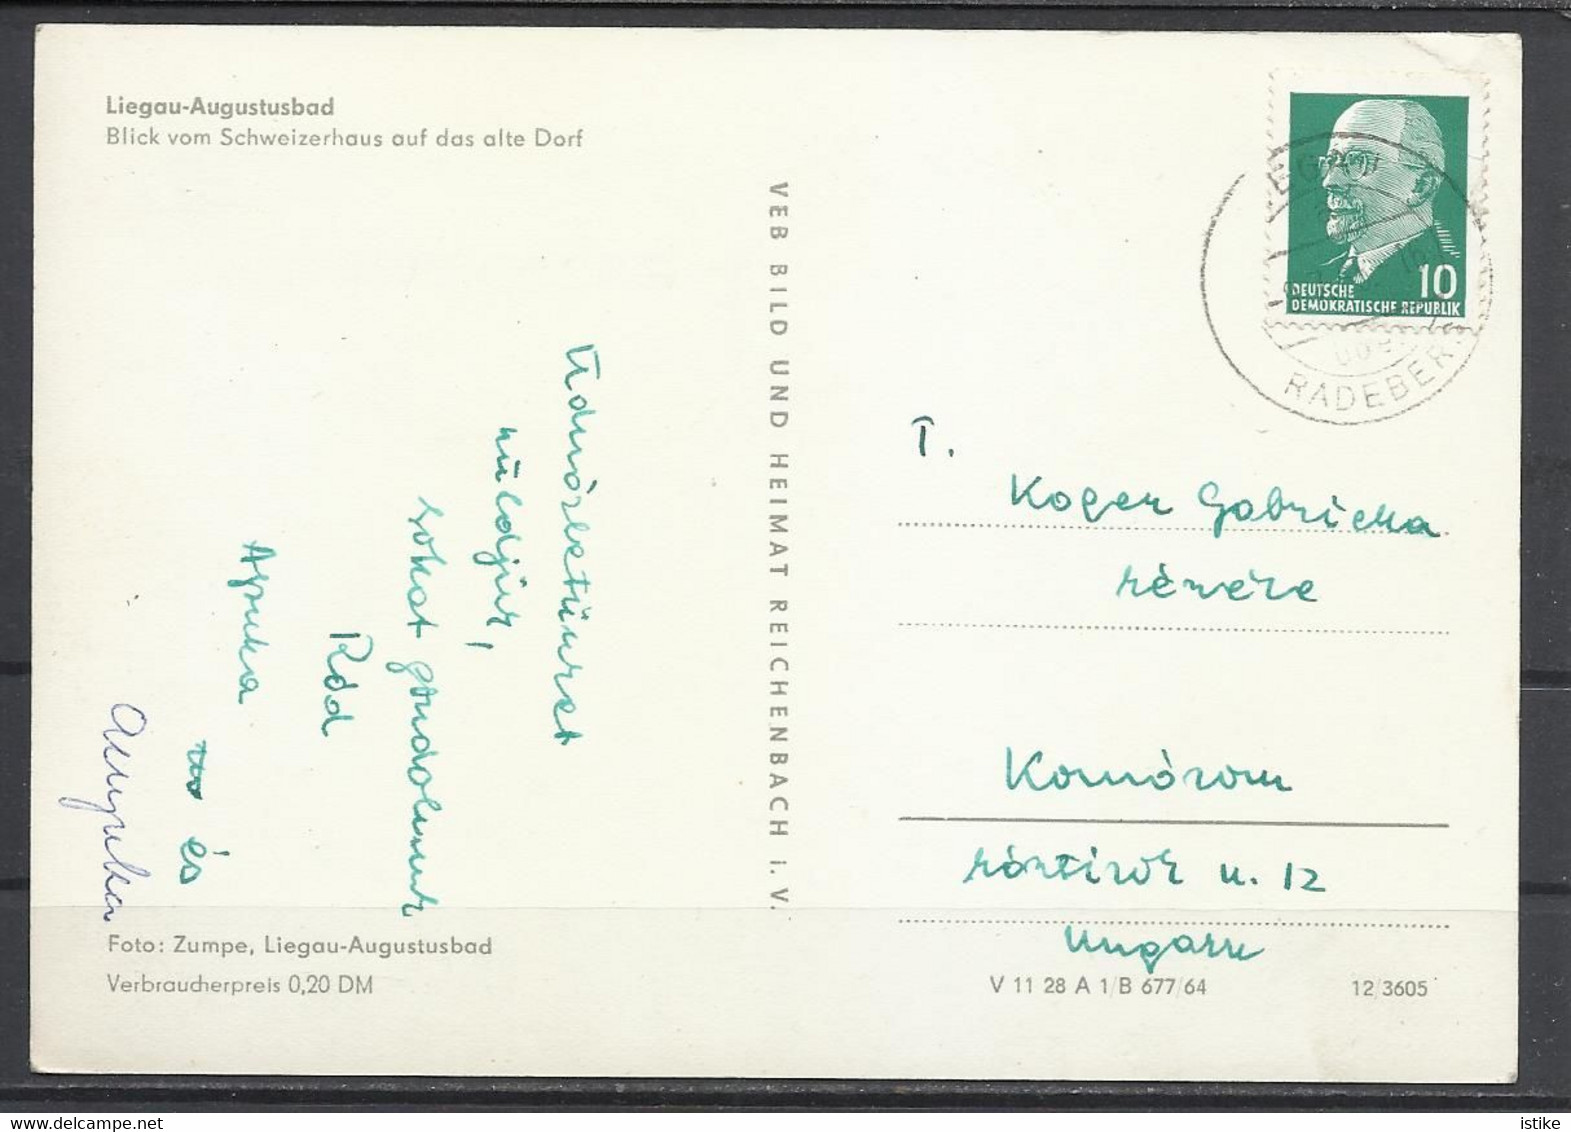 Liegau-Augustusbad
Blick vom Schweizerhaus auf das alte Dorf
VEB BILD UND HEIMAT REICHENBACH i. V.
10
DEUTSCHE
DEMOKRATISCHE REPUBLIK
über
RADEBER
Üdvözletünket
küldjük,
sokat gondolunk
Rád
Ágnuka
és
Anyuka
T.
Koger Gabriella
részére
Komárom
u. 12
Ungarn
Foto: Zumpe, Liegau-Augustusbad
Verbraucherpreis 0,20 DM
V 11 28 A 1/B 677/64
12/3605